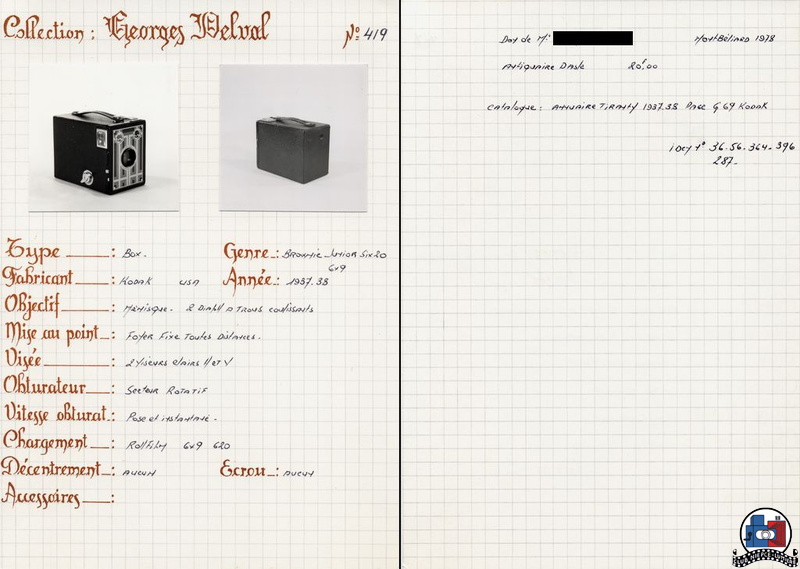 Collection : Georges Delval Nº 419
Type : Box.
Genre : Brownie Junior Six 20
6x9
Fabricant : Kodak USA
Année : 1937.38
Objectif : Ménisque. 2 Diaph à Trous coulissants
Mise au point : Foyer Fixe Toutes Distances.
Visée : 2 Viseurs clairs H et V
Obturateur : Secteur Rotatif
Vitesse obturat. : Pose et instantané.
Chargement : Rollfilm 6x9 620
Décentrement : Aucun
Ecrou : Aucun
Accessoires :
Don de Mr Montbéliard 1978
Antiquaire 20f.00
Catalogue : Annuaire Tiranty 1937.38 Page G 69 Kodak
36.56.364.396
287.